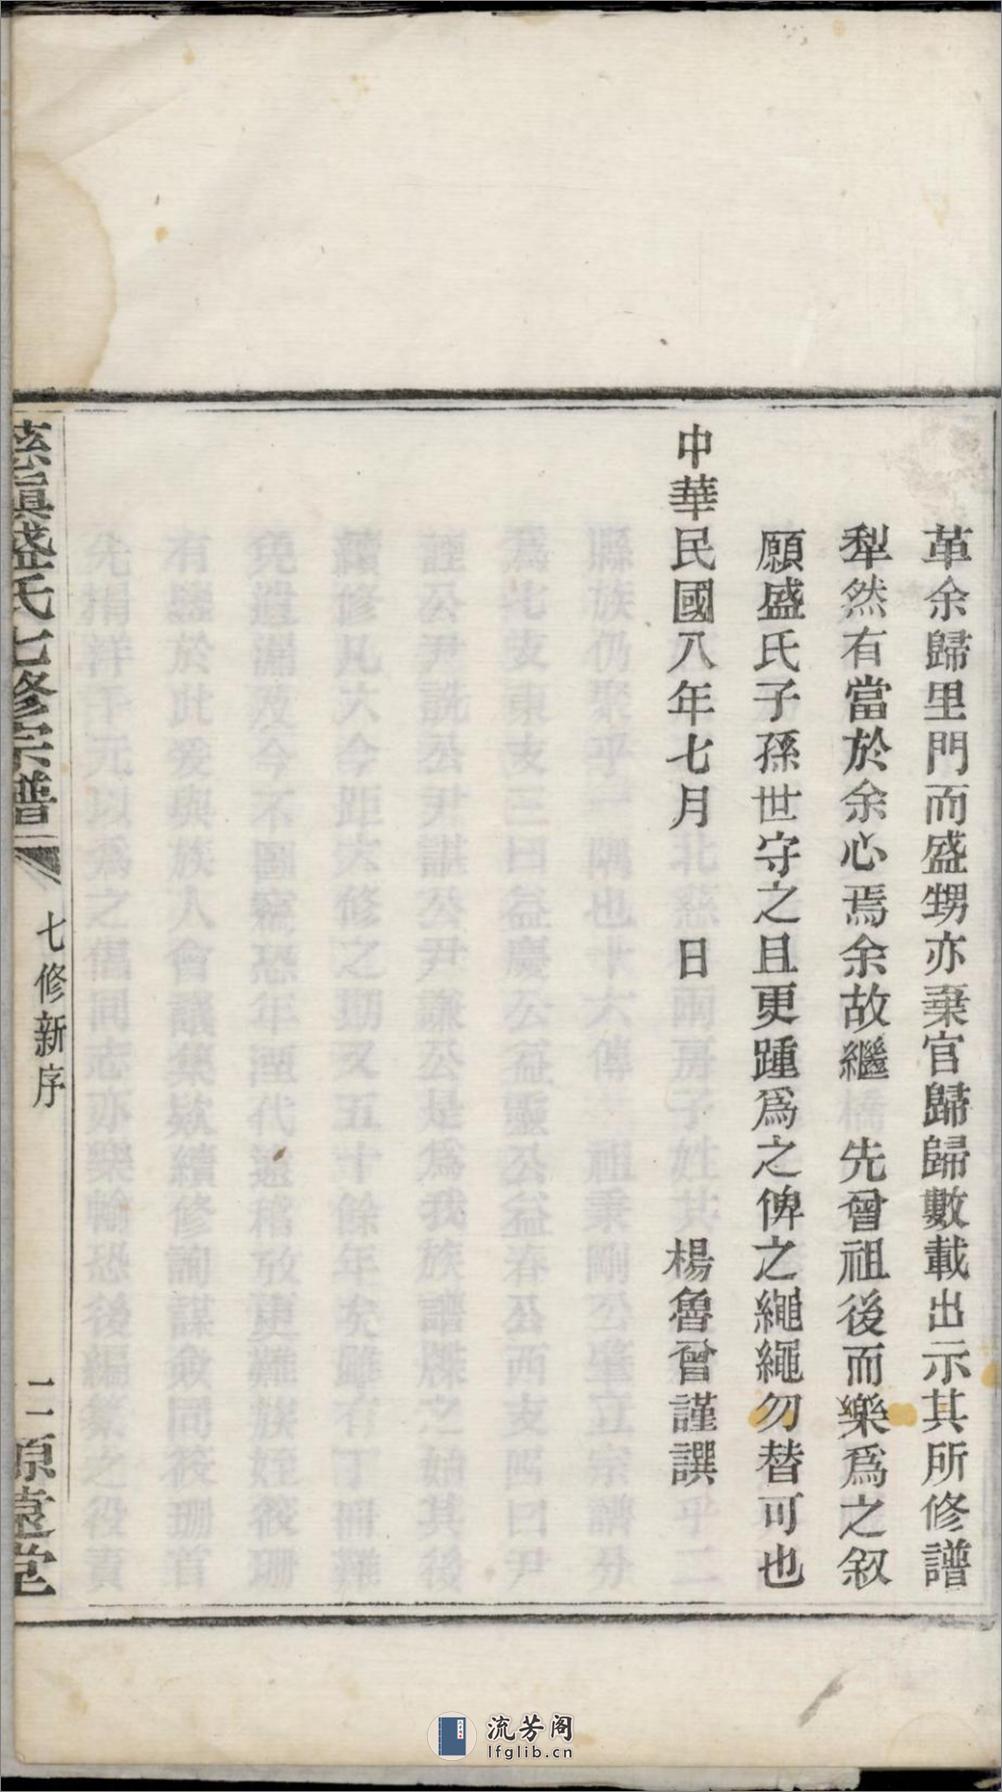 革余歸里門而盛甥亦棄官歸歸數載出示其所修譜
犁然有當於余心焉余故繼 先曾祖後而樂爲之叙
願盛氏子孫世守之且更踵爲之俾之繩繩勿替可也
中華民國八年七月 日 楊魯曾謹譔
慈鎭盛氏七修宗譜 七修新序 二 原遠堂
流芳阁
lfglib.cn